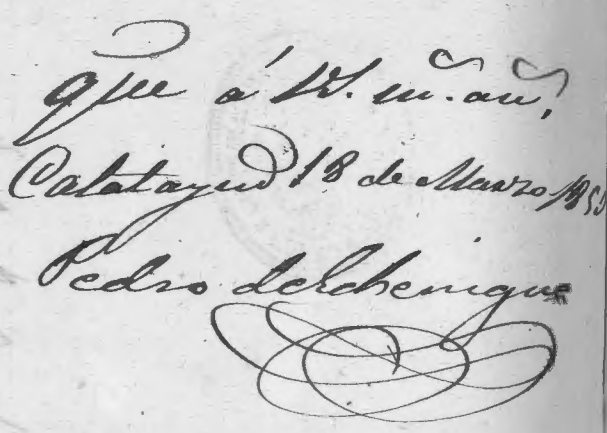 que á V. m. añ.
Calatayud 18 de Marzo 185
Pedro de Echenique